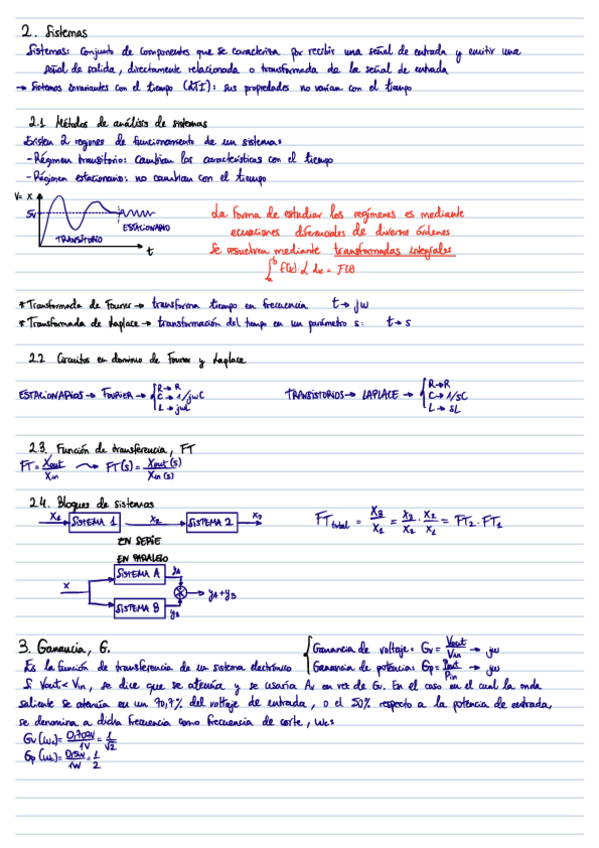 2. Sistemas
Sistemas: Conjunto de componentes que se caracteriza por recibir una señal de entrada y emitir una
señal de salida, directamente relacionada o transformada de la señal de entrada
→ Sistemas invariantes con el tiempo (LTI): sus propiedades no varían con el tiempo
2.1 Métodos de análisis de sistemas
Existen 2 regímenes de funcionamiento de un sistema:
- Régimen transitorio: cambian las características con el tiempo
- Régimen estacionario: no cambian con el tiempo
V= X
5V
TRANSITORIO
ESTACIONARIO
t
La forma de estudiar los regímenes es mediante
ecuaciones diferenciales de diversos órdenes
Se resuelven mediante transformadas integrales
∫_a^b f(x)·L dx = F(t)
* Transformada de Fourier → transforma tiempo en frecuencia t → jω
* Transformada de Laplace → transformación del tiempo en un parámetro s: t → s
2.2 Circuitos en dominio de Fourier y Laplace
ESTACIONARIOS → FOURIER → { R → R
C → 1/jωC
L → jωL
TRANSISTORIOS → LAPLACE → { R → R
C → 1/sC
L → sL
2.3. Función de transferencia, FT
FT = Xout/Xin → FT(s) = Xout(s)/Xin(s)
2.4. Bloques de sistemas
X1 SISTEMA 1 X2 SISTEMA 2 X3
FT total = X3/X1 = X3/X2 · X2/X1 = FT2 · FT1
EN SERIE
EN PARALELO
X
SISTEMA A yA
yA+yB
SISTEMA B
yB
3. Ganancia, G.
{ Ganancia de voltaje: Gv = Vout/Vin → jω
Es la función de transferencia de un sistema electrónico
Ganancia de potencia: Gp = Pout/Pin → jω
Si Vout < Vin, se dice que se atenúa y se usaría Av en vez de Gv. En el caso en el cual la onda
saliente se atenúa en un 70,7% del voltaje de entrada, o el 50% respecto a la potencia de entrada,
se denomina a dicha frecuencia como frecuencia de corte, ωc:
Gv(ωc) = 0,707V/1V = 1/√2
Gp(ωc) = 0,5W/1W = 1/2